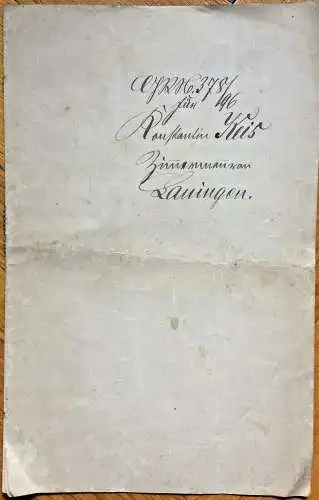 GRN. 378/
für 196
Konstantin Keis
Zimmermann von
Lauingen.